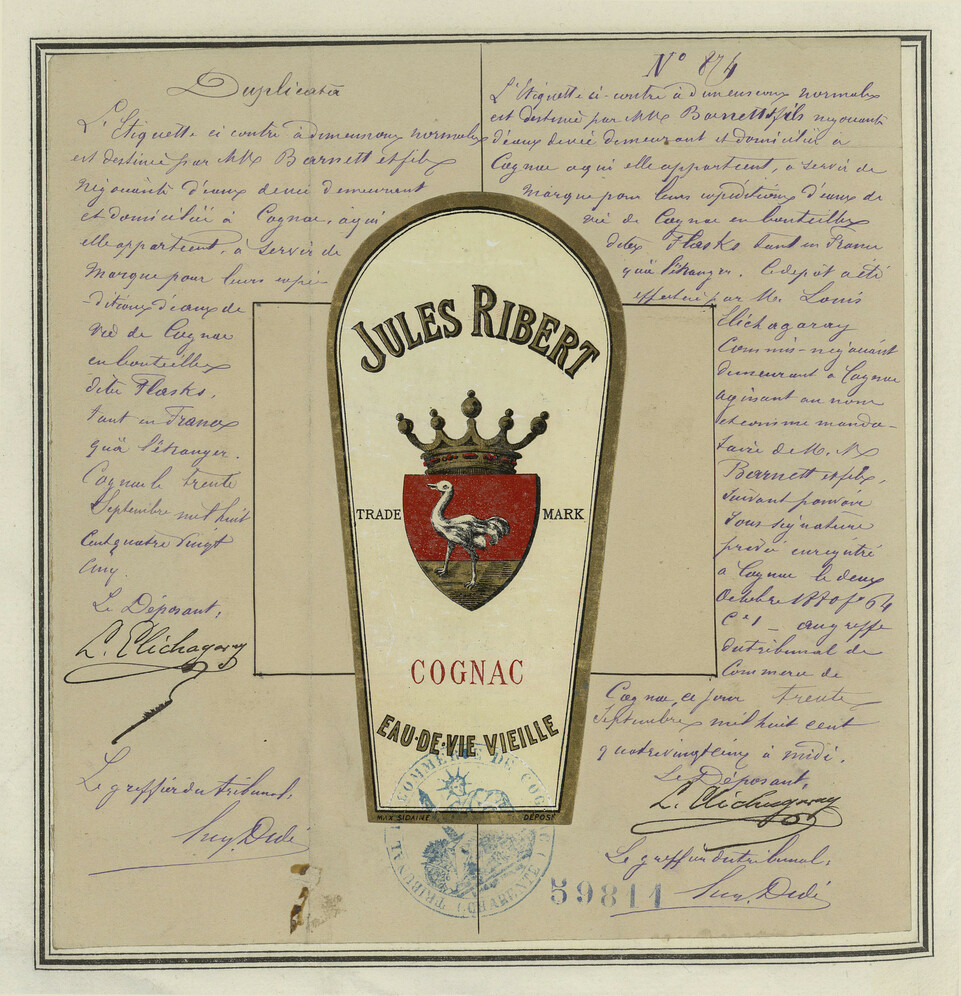 Duplicata
L'Etiquette ci contre à dimensions normales
est destinée par MM Barnett et fils
négociants d'eaux de vie demeurant
et domiciliés à Cognac, à qui
elle appartient, à servir de
Marque pour leurs expé-
-ditions d'eaux de
vie de Cognac
en bouteilles
dites Flasks,
tant en France
qu'à l'étranger.
Cognac le trente
Septembre mil huit
cent quatre vingt
cinq.
Le Déposant,
L. Elichagaray
Le greffier du tribunal,
N° 874
L'Etiquette ci-contre à dimensions normales
est destinée par MM Barnett & fils négociants
d'eaux de vie demeurant et domiciliés à
Cognac à qui elle appartient, à servir de
Marque pour leurs expéditions d'eaux de
vie de Cognac en bouteilles
dites Flasks tant en France
qu'à l'étranger. Le dépôt a été
effectué par Mr Louis
Elichagaray
Commis-négociant
demeurant à Cognac
agissant au nom
et comme manda-
taire de M. M
Barnett et fils,
suivant pouvoir
sous signature
privée enregistré
à Cognac le deux
Octobre 1880 f° 64
C° 1 - au greffe
du tribunal de
Commerce de
Cognac, ce jour trente
Septembre mil huit cent
quatre vingt cinq à midi.
Le Déposant,
L. Elichagaray
Le greffier du tribunal,
JULES RIBERT
TRADE MARK
COGNAC
EAU-DE-VIE VIEILLE
MAX SIDAINE DÉPOSÉ
TRIBUNAL DE COMMERCE DE COGNAC (CHARENTE)
59811